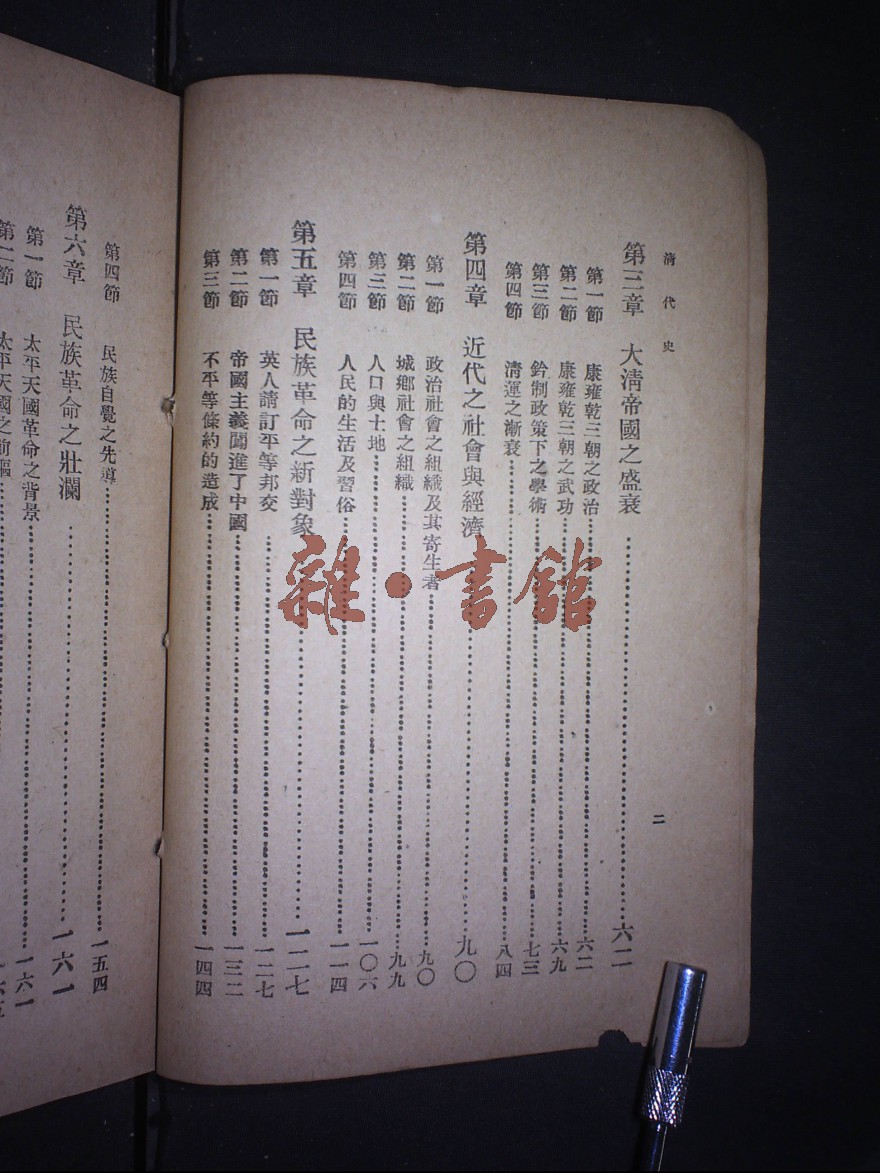 清代史
二
第三章 大清帝國之盛衰…六二
第一節 康雍乾三朝之政治…六二
第二節 康雍乾三朝之武功…六九
第三節 鈐制政策下之學術…七三
第四節 淸運之漸衰…八四
第四章 近代之社會與經濟…九〇
第一節 政治社會之組織及其寄生者…九〇
第二節 城鄉社會之組織…九九
第三節 人口與土地…一〇六
第四節 人民的生活及習俗…一一四
第五章 民族革命之新對象…一二七
第一節 英人請訂平等邦交…一二七
第二節 帝國主義闖進了中國…一三二
第三節 不平等條約的造成…一四四
第四節 民族自覺之先導…一五四
第六章 民族革命之壯瀾…一六一
第一節 太平天國革命之背景…一六一
太平天國之前驅
雜·書館